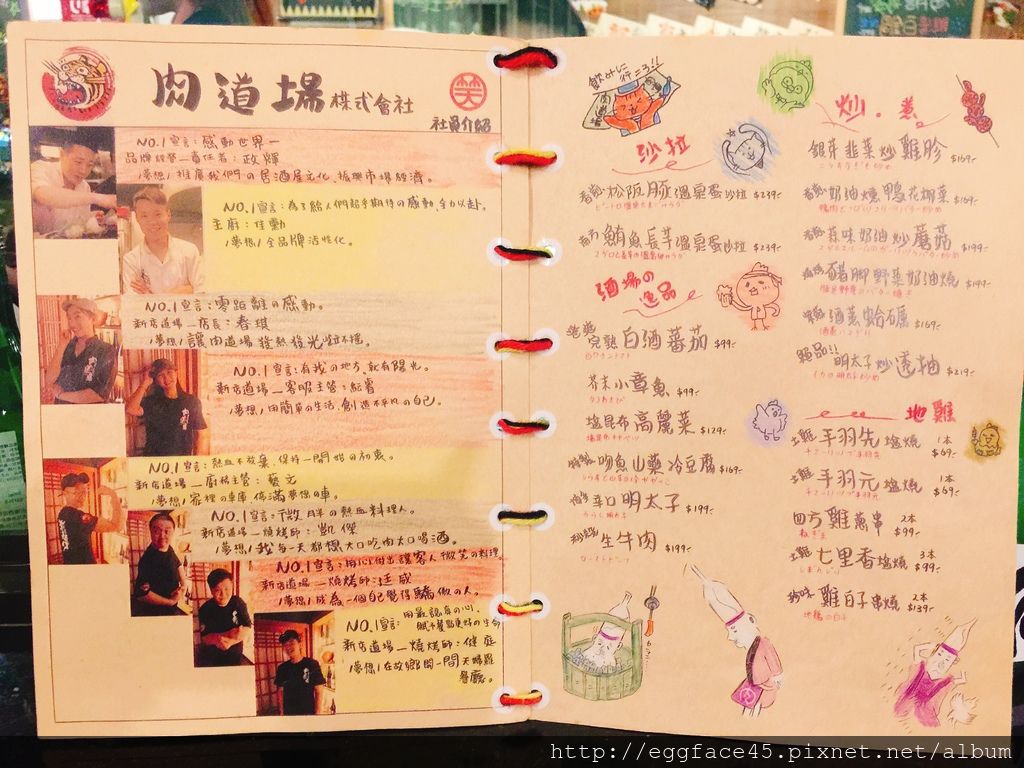 肉道場 株式會社
笑
社員介紹
NO.1宣言：感動世界一
品牌經營—責任者：政輝
/夢想/推廣我們の居酒屋文化、振興市場經濟。
NO.1宣言：為了給人們超乎期待の感動，全力以赴。
主廚：佳勳
/夢想/全品牌活性化。
NO.1宣言：零距離の感動。
新店道場—店長：春琪
/夢想/讓肉道場發熱發光
NO.1宣言：有我の地方，就有陽光。
新店道場—客服主管：
/夢想/用簡單の生活，創造不平凡の自己。
NO.1宣言：熱血不放棄，保持一開始の初衷。
新店道場—廚務主管：藝文
/夢想/家裡の車庫停滿夢想の車。
NO.1宣言：微胖の熱血料理人。
新店道場—燒烤師：凱傑
/夢想/我每一天都想大口吃肉大口喝酒。
NO.1宣言：用心做出讓客人微笑の料理
新店道場—燒烤師：廷威
/夢想/成為一個自己覺得驕傲の人。
NO.1宣言：用最認真の心，賦予餐點更好の生命
新店道場—燒烤師：健庭
/夢想/在故鄉開一間天婦羅餐廳。
飲みに行こう!!
沙拉
松阪豚溫泉蛋沙拉 $239-
鮪魚長芋溫泉蛋沙拉 $239-
酒場の逸品
完熟白酒蕃茄 $99-
芥末小章魚 $99-
塩昆布高麗菜 $129-
吻魚山藥冷豆腐 $169-
辛口明太子 $199-
生牛肉 $199-
炒・煮
銀芽韭菜炒雞胗 $169-
奶油燒鴨花椰菜 $169-
蒜味奶油炒蘑菇 $199-
豬腳野菜奶油燒 $199-
酒蒸蛤蠣 $169-
明太子炒透抽 $219-
地雞
土雞 手羽先塩燒 1本 $69-
土雞 手羽元塩燒 1本 $69-
四方雞蔥串 2本 $99-
土雞 七里香塩燒 3本 $99-
雞白子串燒 2本 $139-
http://eggface45.pixnet.net/album